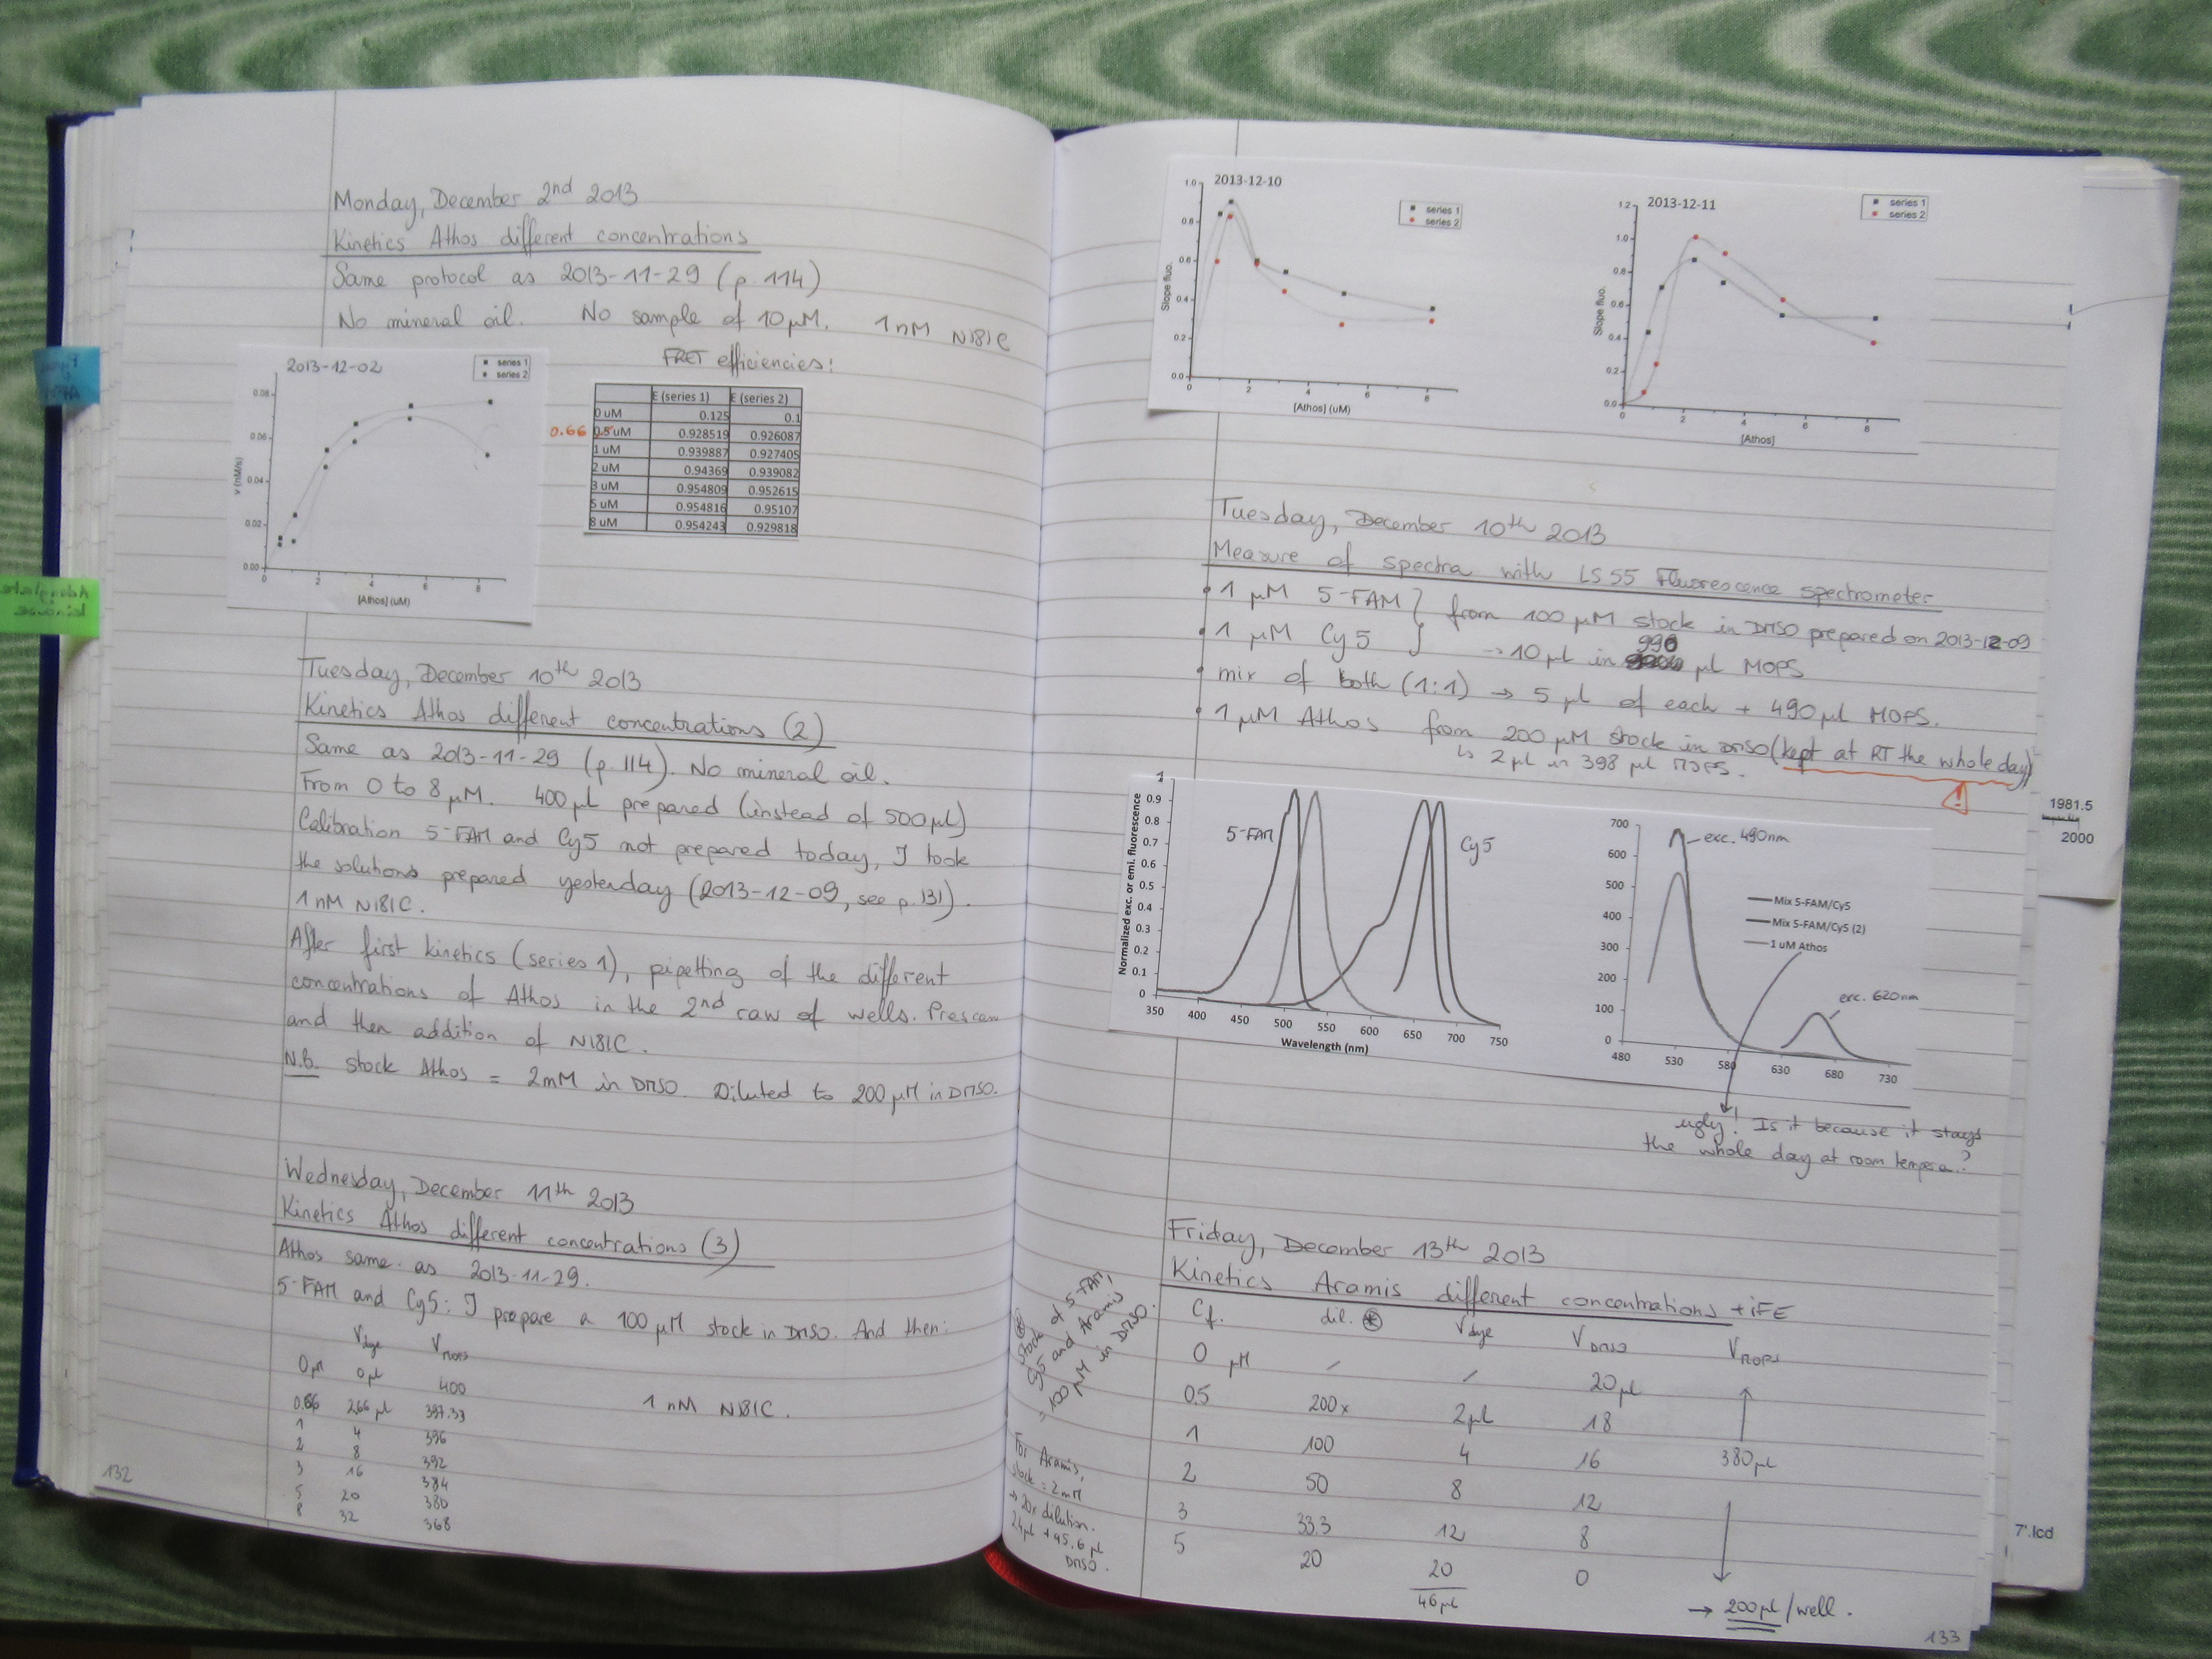 Monday, December 2nd 2013
Kinetics Athos different concentrations
Same protocol as 2013-11-29 (p. 114)
No mineral oil. No sample of 10 µM. 1 nM N181C
2013-12-02
series 1
series 2
0.08
0.06
0.04
0.02
0.00
v (nM/s)
0 2 4 6 8
[Athos] (uM)
FRET efficiencies:
E (series 1) E (series 2)
0 uM 0.125 0.1
0.66 0.5 uM 0.928519 0.926087
1 uM 0.939887 0.927405
2 uM 0.94369 0.939082
3 uM 0.954809 0.952615
5 uM 0.954816 0.95107
8 uM 0.954243 0.929818
Tuesday, December 10th 2013
Kinetics Athos different concentrations (2)
Same as 2013-11-29 (p. 114). No mineral oil.
From 0 to 8 µM. 400 µl prepared (instead of 500 µl)
Calibration 5-FAM and Cy5 not prepared today, I took
the solutions prepared yesterday (2013-12-09, see p. 131).
1 nM N181C.
After first kinetics (series 1), pipetting of the different
concentrations of Athos in the 2nd raw of wells. Prescan
and then addition of N181C.
N.B. stock Athos = 2mM in DMSO. Diluted to 200 µM in DMSO.
Wednesday, December 11th 2013
Kinetics Athos different concentrations (3)
Athos same as 2013-11-29.
5-FAM and Cy5: I prepare a 100 µM stock in DMSO. And then:
Vdye VMOPS
0 µM 0 µl 400
0.66 2.66 µl 397.33
1 4 396
2 8 392
3 16 384
5 20 380
8 32 368
1 nM N181C.
132
2013-12-10
series 1
series 2
1.0
0.8
0.6
0.4
0.2
0.0
Slope fluo.
0 2 4 6 8
[Athos] (uM)
2013-12-11
series 1
series 2
1.2
1.0
0.8
0.6
0.4
0.2
0.0
Slope fluo.
0 2 4 6 8
[Athos]
Tuesday, December 10th 2013
Measure of spectra with LS 55 Fluorescence spectrometer
• 1 µM 5-FAM } from 100 µM stock in DMSO prepared on 2013-12-09
• 1 µM Cy5 → 10 µl in 990 µl MOPS
• mix of both (1:1) → 5 µl of each + 490 µl MOPS.
• 1 µM Athos from 200 µM stock in DMSO (kept at RT the whole day)
↳ 2 µl in 398 µl MOPS.
!
5-FAM
Cy5
1
0.9
0.8
0.7
0.6
0.5
0.4
0.3
0.2
0.1
0
Normalized exc. or emi. fluorescence
350 400 450 500 550 600 650 700 750
Wavelength (nm)
700
600
500
400
300
200
100
0
480 530 580 630 680 730
exc. 490nm
Mix 5-FAM/Cy5
Mix 5-FAM/Cy5 (2)
1 uM Athos
exc. 620nm
ugly! Is it because it stays
the whole day at room tempera.?
1981.5
2000
Friday, December 13th 2013
Kinetics Aramis different concentrations + iFE
Cf. dil. ⊛ Vdye VDMSO VMOPS
0 µM / / 20 µl
0.5 200x 2 µl 18
1 100 4 16 380 µl
2 50 8 12
3 33.3 12 8
5 20 20 0
46 µl
→ 200 µl/well.
⊛
Stock of 5-FAM,
Cy5 and Aramis
= 100 µM in DMSO.
For Aramis,
stock = 2mM
→ 20x dilution.
2.4 µl + 45.6 µl
DMSO.
133
7'.lcd
Adenylate
kinase